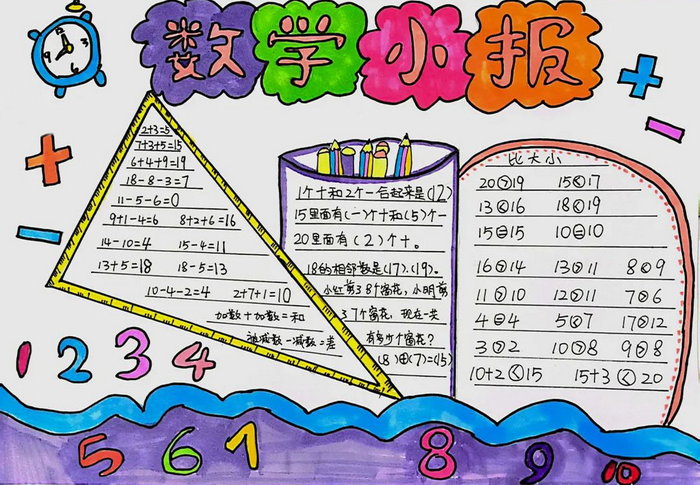 数学小报
2+3=5
7+3+5=15
6+4+9=19
18-8-3=7
11-5-6=0
9+1-4=6 8+2+6=16
14-10=4 15-4=11
13+5=18 18-5=13
10-4-2=4 2+7+1=10
加数+加数=和
被减数-减数=差
1个十和2个一合起来是(12)
15里面有(一)个十和(5)个一
20里面有(2)个十。
18的相邻数是(17)、(19)。
小红剪了8个窗花，小明剪
了7个窗花，现在一共
有多少个窗花？
(8)⊕(7)=(15)
比大小
20>19 15<17
13<16 18<19
15=15 10=10
16>14 13>11 8<9
11>10 12>11 7>6
4=4 5<7 17>12
3>2 10>8 9>8
10+2<15 15+3<20
1 2 3 4
5 6 7 8 9 10